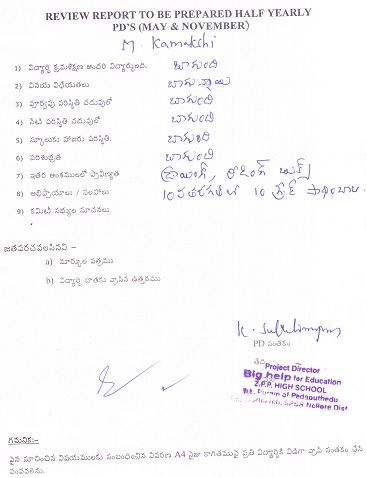 REVIEW REPORT TO BE PREPARED HALF YEARLY
PD'S (MAY & NOVEMBER)
M. Kamakshi
1) విద్యార్థి క్రమశిక్షణ అందరి విద్యార్థులది. బాగుంది
2) వినయ విధేయతలు బాగున్నాయి
3) పూర్వపు పరిస్థితి చదువులో బాగుంది
4) నేటి పరిస్థితి చదువులో బాగుంది
5) స్కూలుకు హాజరు పరిస్థితి. బాగుంది
6) పరిశుభ్రత బాగుంది
7) ఇతర అంశములలో ప్రావీణ్యత డ్రాయింగ్,
8) అభిప్రాయాలు / సలహాలు 10వతరగతిలో 10 గ్రేడ్ సాధించాలి.
9) కమిటీ సభ్యుల సూచనలు
జతపరచవలసినవి –
a) మార్కుల పత్రము
b) విద్యార్థి దాతకు వ్రాసిన ఉత్తరము
PD సంతకం
తేది
Project Director
Big help for Education
Z.P.P. HIGH SCHOOL
SPSR Nellore Dist
గమనిక:–
పైన సూచించిన విషయములకు సంబంధించిన వివరణ A4 సైజు కాగితముపై ప్రతి విద్యార్థికి విడిగా వ్రాసి సంతకం చేసి
పంపవలెను.